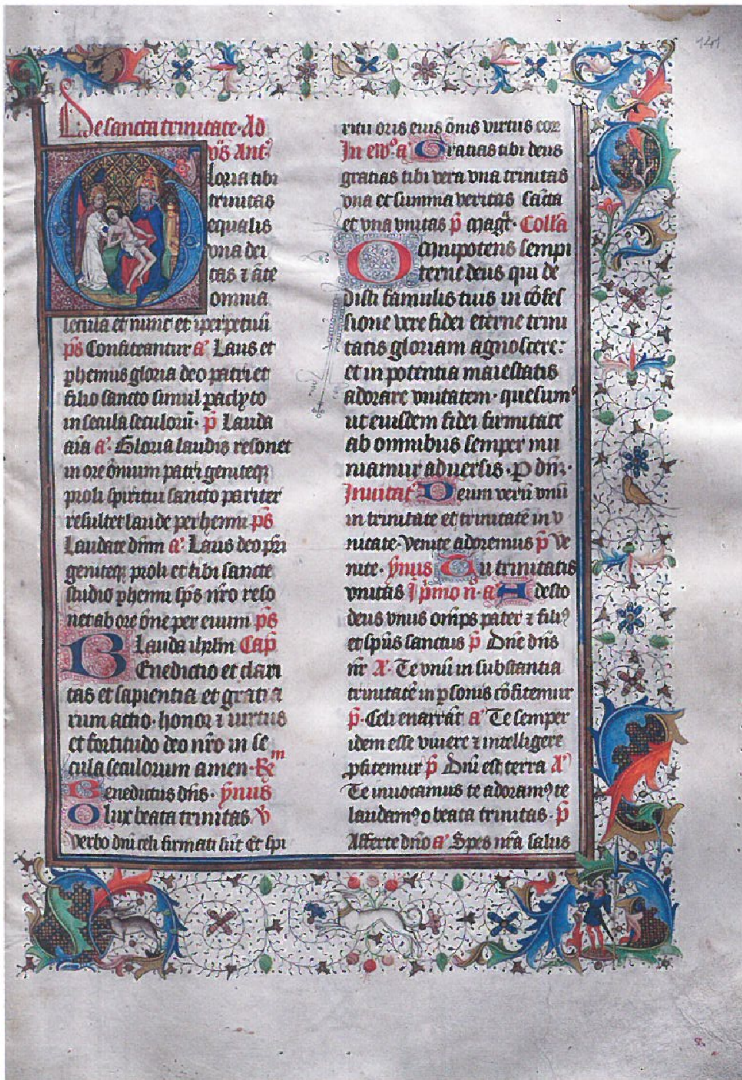 De sancta trinitate. Ad
vp̄s Ant.
Gloria tibi
trinitas
equalis
vna dei
tas ⁊ āte
omnia
secula et nunc et ī perpetuū
ps Confiteantur a. Laus et
phemnis gloria deo patri et
filio sancto simul paclyto
in secula seculorū. p̄ Lauda
aīa a. Gloria laudis resonet
in ore ōnium patri geniteqꝫ
proli spiritui sancto pariter
resultet laude perhenni ps
Laudate dnm a. Laus deo pr̄i
geniteqꝫ proli et tibi sancte
studio phenni sps nr̄o reso
net ab ore ōne per euum ps
Lauda ihrlm Cap̄
Benedictio et clari
tas et sapientia et gratia
rum actio. honor ⁊ uirtus
et fortitudo deo nr̄o in se
cula seculorum amen. Rm
Benedictus dn̄s. ymus
O lux beata trinitas. V
Verbo dnī celi firmati sūt Et spi
ritu oris eius ōnis virtus eoꝝ
In euāº a Gratias tibi deus
gratias tibi vera vna trinitas
vna et summa veritas sācta
et vna vnitas p̄ Magt. Coll'a
Omnipotens sempi
terne deus qui de
disti famulis tuis in cōfes
sione vere fidei eterne trini
tatis gloriam agnoscere:
et in potentia maiestatis
adorare vnitatem. quesumꝰ
ut eiusdem fidei firmitate
ab omnibus semper mu
niamur aduersis. P dn̄ꝫ.
Inuitat' Deum verū vnū
in trinitate et trinitatē in v
nitate. Venite adoremus p̄ Ve
nite. ymus Cu trinitatis
vnitas I pmo n. a Adesto
deus vnus omps pater ⁊ filiꝰ
et spūs sanctus p̄ Dn̄e dn̄s
nr̄ A. Te vnū in substantia
trinitatē in psonis cōfitemur
p̄. Celi enarrāt a Te semper
idem esse viuere ⁊ intelligere
ꝓfitemur p̄ Dnī est terra A
Te inuocamus te adoramꝰ te
laudamꝰ o beata trinitas. p̄
Afferte dn̄o a Spes nr̄a salus
141